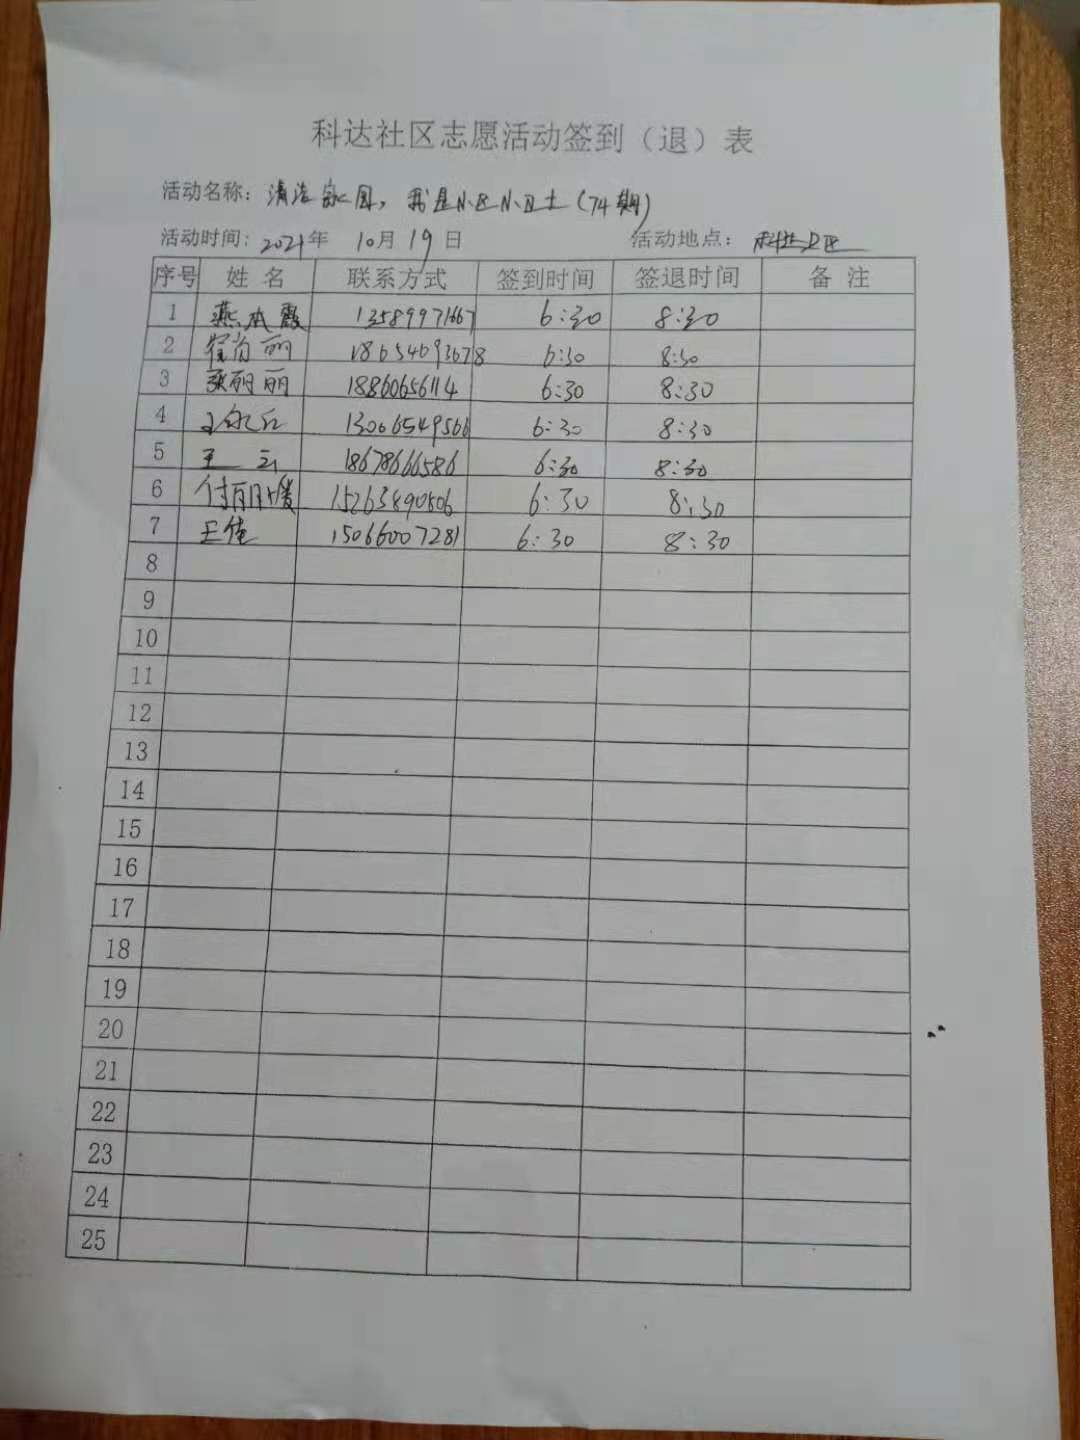 科达社区志愿活动签到（退）表
活动名称：清洁家园，我是小区小卫士（74期）
活动时间：2021年 10月 19日 活动地点：科达社区
序号 姓名 联系方式 签到时间 签退时间 备注
1 燕本霞 13589971667 6:30 8:30
2 丽 18654693678 6:30 8:30
3 张丽丽 18860656114 6:30 8:30
4 13066549566 6:30 8:30
5 王云 18678666586 6:30 8:30
6 付丽媛 15263890806 6:30 8:30
7 王倩 15066007281 6:30 8:30
8
9
10
11
12
13
14
15
16
17
18
19
20
21
22
23
24
25